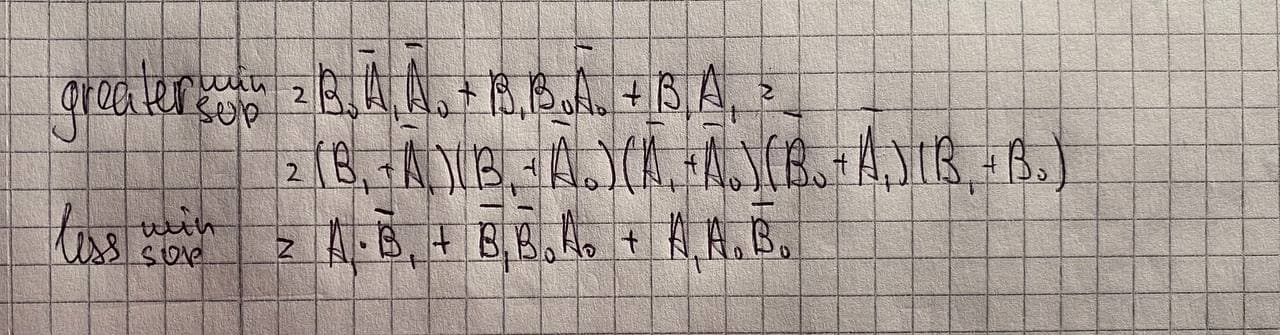 greater min sop = B₀Ā₁Ā₀ + B₁B₀Ā₀ + B₁A₁ =
= (B₁ + Ā₁)(B₁ + Ā₀)(Ā₁ + Ā₀)(B̄₀ + Ā₁)(B₁ + B₀)
less min sop = A₁·B̄₁ + B̄₁B̄₀A₀ + A₁A₀B̄₀